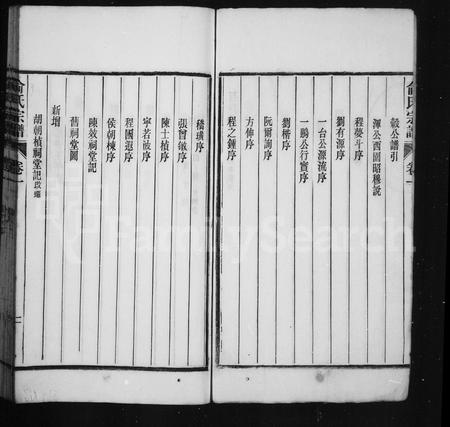 俞氏宗譜
卷一
毅公譜引
渾公西園昭穆說
程夢斗序
劉有源序
一台公源流序
一鵬公行實序
劉楷序
阮爾詢序
方伸序
程之鍾序
稽璜序
張曾敏序
陳士楨序
寧若敀序
程國遐序
侯朝棟序
陳效祠堂記
舊祠堂圖
新增
胡朝植祠堂記改遷
俞氏宗譜
卷一
FamilySearch